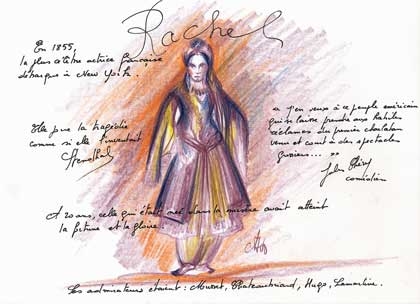 Rachel
En 1855,
la plus célèbre actrice française
débarqua à New York.
Elle joue la tragédie
comme si elle l'inventait
Stendhal
" J'en veux à ce peuple américain
qui se laisse prendre aux
réclames du premier charlatan
venu et court à des spectacles
grossiers... "
Jules Chéry
comédien
A 20 ans, celle qui était née dans la misère avait atteint
la fortune et la gloire.
Ses admirateurs étaient : Musset, Chateaubriand, Hugo, Lamartine.